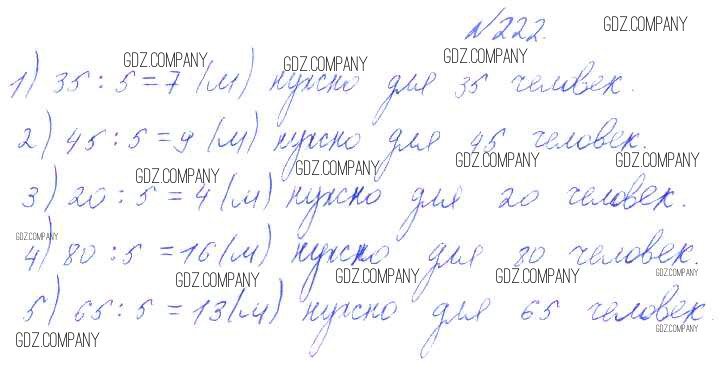 №222.
GDZ.COMPANY
GDZ.COMPANY GDZ.COMPANY GDZ.COMPANY
1) 35 : 5 = 7 (м) нужно для 35 человек.
2) 45 : 5 = 9 (м) нужно для 45 человек.
GDZ.COMPANY GDZ.COMPANY GDZ.COMPANY GDZ.COMPANY
3) 20 : 5 = 4 (м) нужно для 20 человек.
GDZ.COMPANY
4) 80 : 5 = 16 (м) нужно для 80 человек.
GDZ.COMPANY GDZ.COMPANY GDZ.COMPANY GDZ.COMPANY
5) 65 : 5 = 13 (м) нужно для 65 человек.
GDZ.COMPANY GDZ.COMPANY